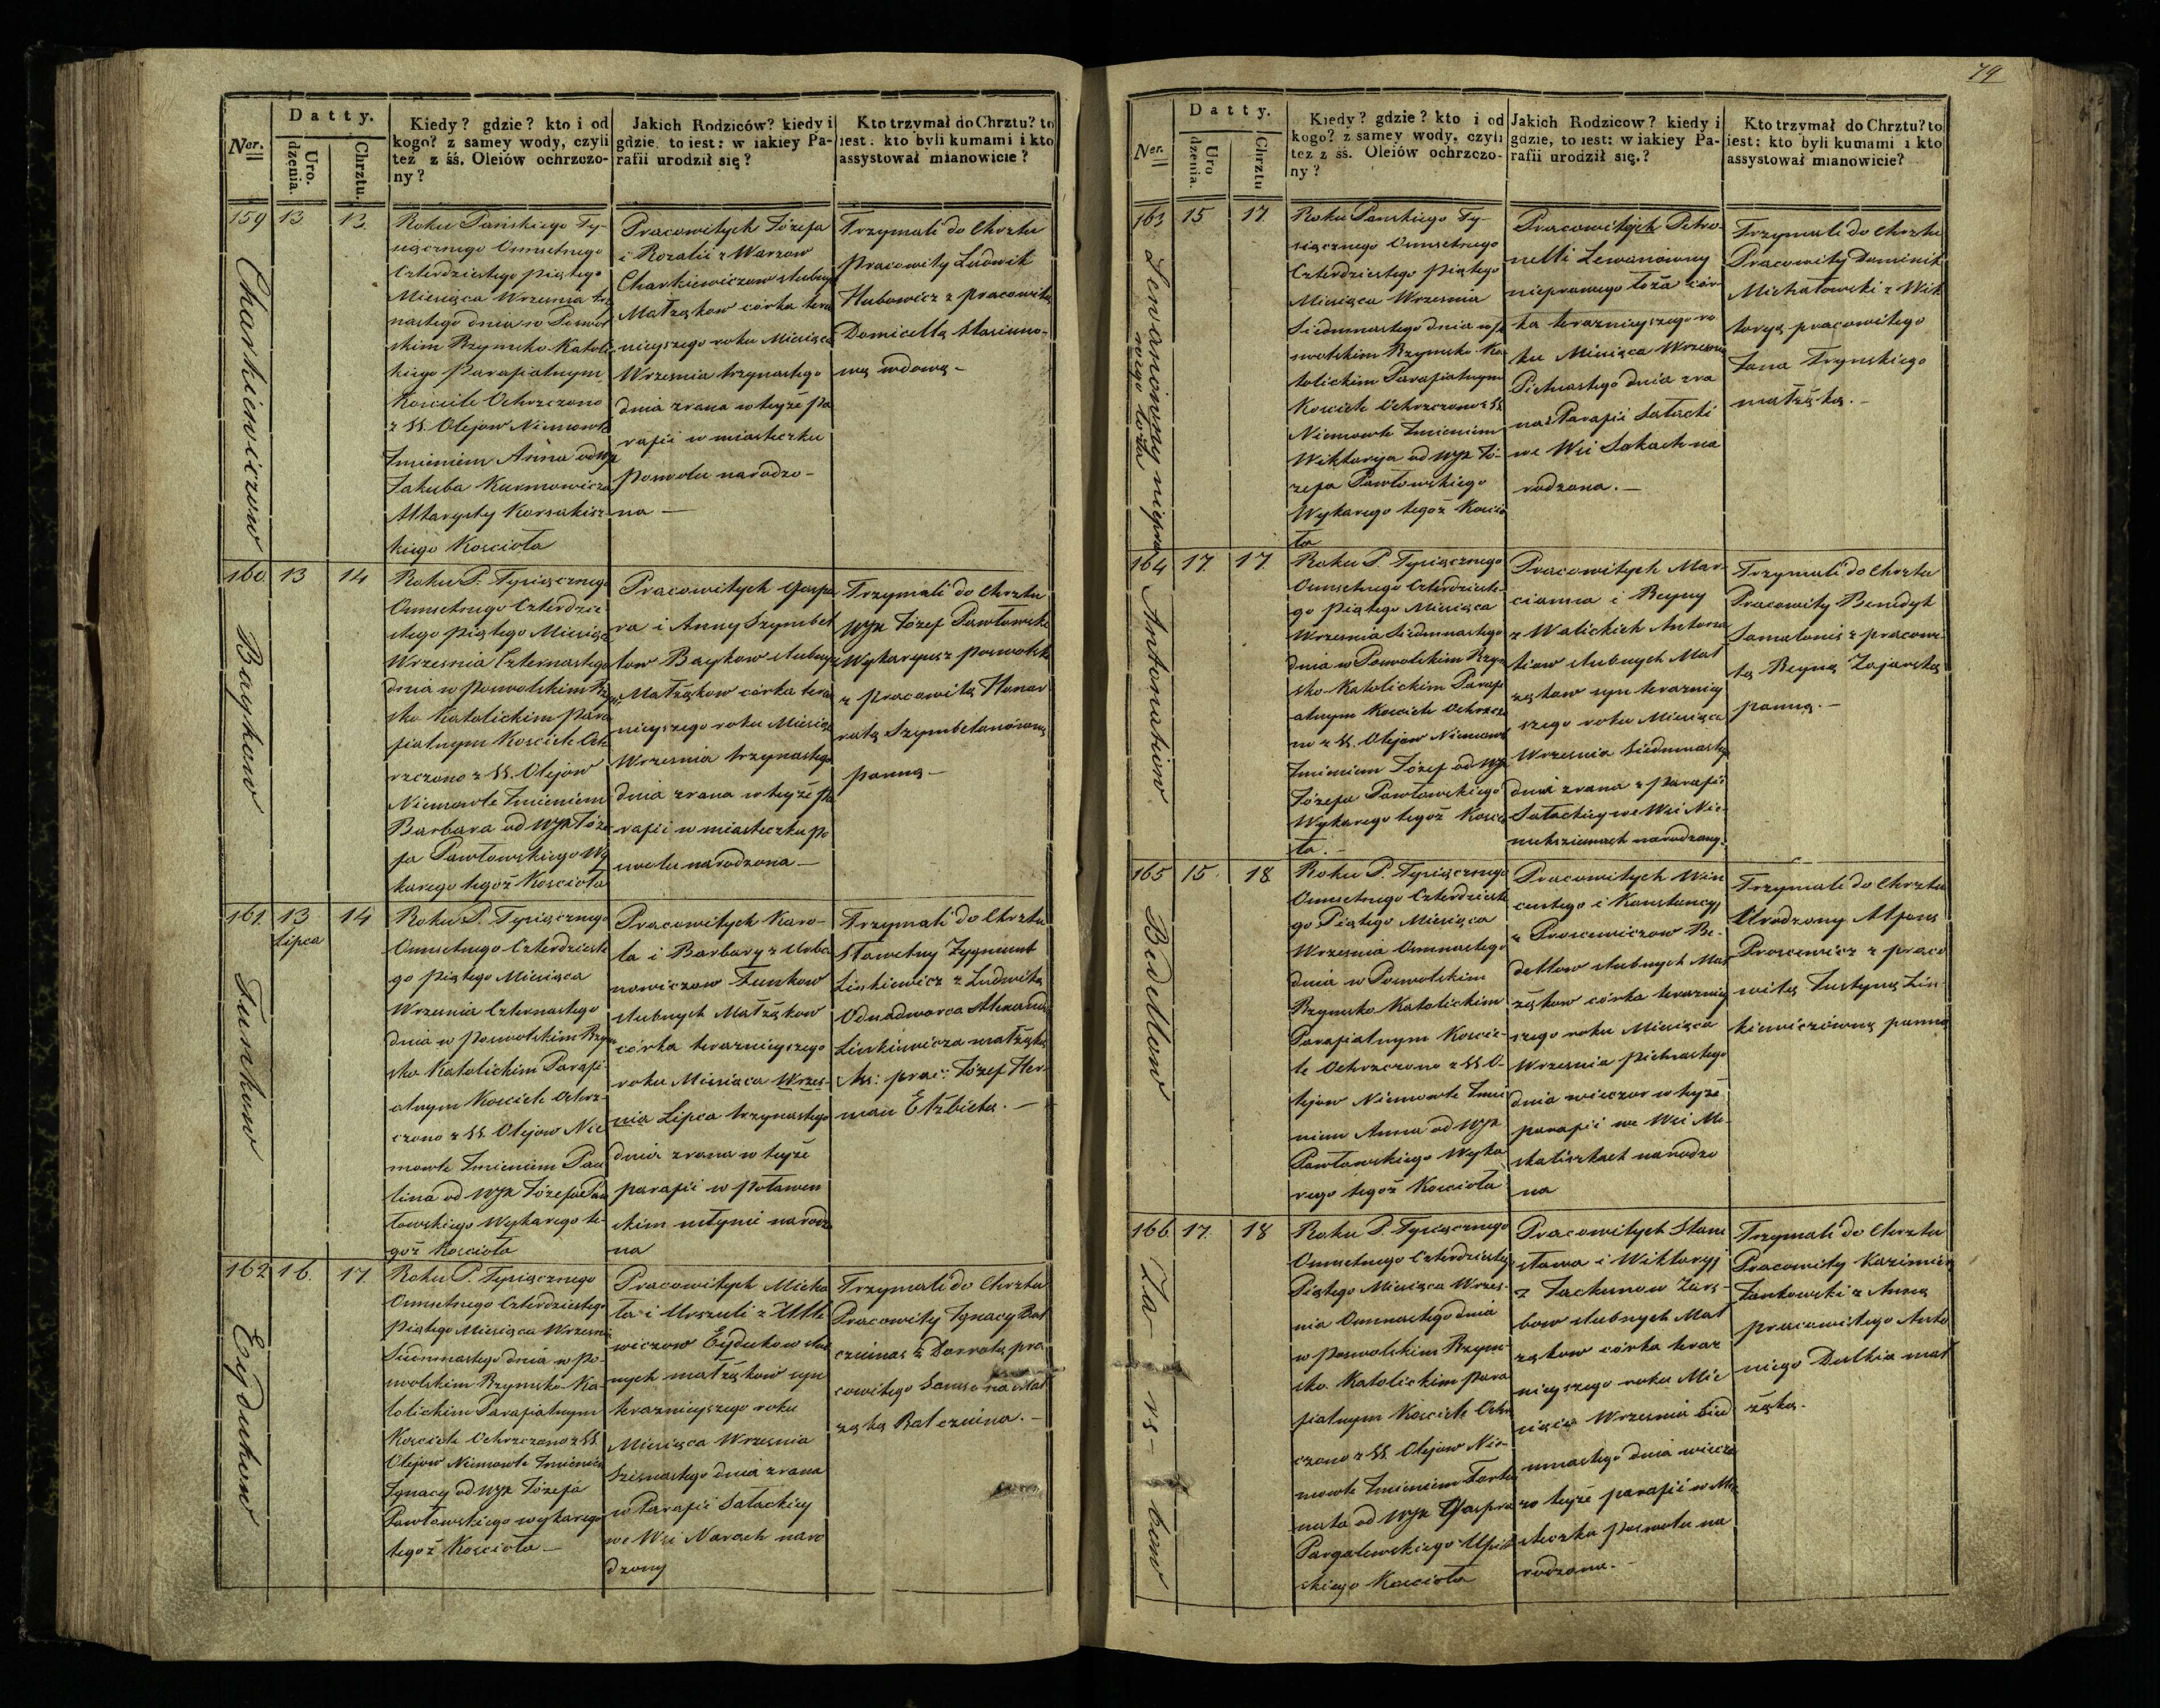 79
Datty.
Ner.
Uro.
dzenia.
Chrztu.
Kiedy? gdzie? kto i od
kogo? z samey wody, czyli
też z śś. Oleiów ochrzczo-
ny?
Jakich Rodziców? kiedy i
gdzie, to iest: w iakiey Pa-
rafii urodził się?
Kto trzymał do Chrztu? to
iest: kto byli kumami i kto
assystował mianowicie?
159
13.
13.
Charkiewiczow
Roku Pańskiego Ty-
siącznego Osmsetnego
Czterdziestego piątego
Miesiąca Wrzesnia trzy
nastego dnia w Poswol
skim Rzymsko-Katolic
kiego Parafialnym
Kosciele Ochrzczono
z SS. Olejow Niemowle
Imieniem Anna od Wjx
Jakuba Kurmowicza
Altarysty Korsakisz
kiego Kosciola
Pracowitych Józefa
i Rozalii z Warzow
Charkiewiczow slubnych
Małżąkow córka tera
znieyszego roku Miesiąca
Wrzesnia trzynastego
dnia zrana w teyże pa
rafii w miasteczku
Poswolu narodzo-
na —
Trzymali do Chrztu
pracowity Ludwik
Hubowicz z pracowitą
Domicellą Stasiuno-
wą wdową —
160.
13
14
Baykow
Roku P. Tysiącznego
Osmsetnego Czterdzie-
stego piątego Miesiąca
Wrzesnia Czternastego
dnia w poswolskim Rzym
sko Katolickim para
fialnym Kosciele Och
rzczono z SS. Olejow
Niemowle Imieniem
Barbara od Wjx Józe
fa Pawłowskiego Wy
karego tegoż Kosciola
Pracowitych Gaspa
ra i Anny Szymbel
low Baykow slubnych
Małżąkow córka tera
znieyszego roku Miesiąca
Wrzesnia trzynastego
dnia zrana w teyże pa
rafii w miasteczku po
swolu narodzona —
Trzymali do Chrztu
Wjx Józef Pawłowski
Wykaryusz poswolski
z pracowitą Honor
ratą Szymbelanówną
panną —
161.
13
Lipca
14
Funkow
Roku P. Tysiącznego
Osmsetnego Czterdzieste
go piątego Miesiąca
Wrzesnia Czternastego
dnia w poswolskim Rzym
sko Katolickim Parafi
alnym Kosciele Ochrz-
czono z SS. Olejow Nie
mowle Imieniem Pau
lina od Wjx Józefa Paw
łowskiego Wykarego te-
goż Kosciola
Pracowitych Karo-
la i Barbary z Urba
nowiczow Funkow
slubnych Małżąkow
córka teraznieyszego
roku Miesiąca Wrzes-
nia Lipca trzynastego
dnia zrana w teyże
parafii w Poławen
skim młynie narodzo
na
Trzymali do Chrztu
Sławetny Zygmunt
Linkiewicz z Ludwiką
Odnadworca
Linkiewicza małżąką
As: prac: Józef Her-
man Elżbieta. —
162
16.
17.
Eydukow
Roku P. Tysiącznego
Osmsetnego Czterdziestego
Piątego Miesiąca Wrzesnia
Siedmnastego dnia w po-
swolskim Rzymsko-Ka-
tolickim Parafialnym
Kosciele Ochrzczono z SS.
Olejow Niemowle Imieniem
Ignacy od Wjx Józefa
Pawłowskiego wykarego
tegoż Kosciola —
Pracowitych Micha
ła i Urszuli z
wiczow Eydukow slub
nych małżąkow syn
teraznieyszego roku
Miesiąca Wrzesnia
Szesnastego dnia zrana
w Parafii Sałackiey
we Wsi Narach naro
dzony
Trzymali do Chrztu
Pracowity Ignacy Bal
czuinas z Dorrotą pra
cowitego Samsona Mał
żąką Balczuina. —
Datty.
Ner.
Uro
dzenia.
Chrztu
Kiedy? gdzie? kto i od
kogo? z samey wody, czyli
też z śś. Oleiów ochrzczo-
ny?
Jakich Rodzicow? kiedy i
gdzie, to iest: w iakiey Pa-
rafii urodził się.?
Kto trzymał do Chrztu? to
iest: kto byli kumami i kto
assystował mianowicie?
163
15
17.
Lewanowny niepra
wego łoża
Roku Panskiego Ty-
siącznego Osmsetnego
Czterdziestego piątego
Miesiąca Wrzesnia
Siedmnastego dnia w po
swolskim Rzymsko-Ka
tolickim Parafialnym
Kosciele Ochrzczono z SS
Niemowle Imieniem
Wiktorya od Wjx Jó-
zefa Pawłowskiego
Wykarego tegoż Koscio
ła
Pracowitych Petro-
nelli Lewanowny
nieprawego łoża cór-
ka teraznieyszego ro
ku Miesiąca Wrzesnia
Pietnastego dnia zra
na z Parafii Sałacki
we Wsi Sakach na
rodzona. —
Trzymali do Chrztu
Pracowity Dominik
Michałowski z Wik
toryą pracowitego
Jana Trynskiego
małżąką. —
164
17
17.
Antonaitiow
Roku P. Tysiącznego
Osmsetnego Czterdzieste-
go piątego Miesiąca
Wrzesnia Siedmnastego
dnia w Poswolskim Rzym
sko-Katolickim Parafi
alnym Kosciele Ochrzczo
no z SS. Olejow Niemowle
Imieniem Józef od Wjx
Józefa Pawłowskiego
Wykarego tegoż Koscio
ła. —
Pracowitych Mar-
ciana i Reginy
z Walickich Antona
tiow slubnych Mał
żąkow syn terazniey
szego roku Miesiąca
Wrzesnia Siedmnastego
dnia zrana z parafii
Sałackiey we Wsi Nie-
narodzony.
Trzymali do Chrztu
Pracowity Benedykt
Samalonis z pracowi-
tą Reginą Zajarską
panną. —
165
15.
18
Bedellow
Roku P. Tysiącznego
Osmsetnego Czterdzieste
go Piątego Miesiąca
Wrzesnia Osmnastego
dnia w Poswolskim
Rzymsko Katolickim
Parafialnym Koscie-
le Ochrzczono z SS O-
lejow Niemowle Imie
niem Anna od Wjx
Pawłowskiego Wyka
rego tegoż Kosciola
Pracowitych Win
centego i Konstancyj
z Proscewiczow Be-
dellow slubnych Mał
żąkow córka terazniey
szego roku Miesiąca
Wrzesnia pietnastego
dnia wieczor w teyże
parafii we Wsi Mo-
skaliszkach narodzo
na
Trzymali do Chrztu
Urodzony Alfons
Proscewicz z praco
witą Justyną Lin-
kiewiczówną panną
166.
17.
18
Za - rs - bow
Roku P. Tysiącznego
Osmsetnego Czterdziestego
Piątego Miesiąca Wrzes-
nia Osmnastego dnia
w poswolskim Rzym-
sko Katolickim para
fialnym Kosciele Ochrz
czono z SS. Olejow Nie-
mowle Imieniem Fortu
nata od Wjx Gaspra
Pargalewskiego Upit
skiego Kosciola
Pracowitych Stani
sława i Wiktoryj
z Jackunow Zars-
bow slubnych Mał
żąkow córka teraz
nieyszego roku Mie
siąca Wrzesnia Sied
mnastego dnia wieczo
w teyże parafii w Mia
steczku poswolu na
rodzona. —
Trzymali do Chrztu
Pracowity Kazimierz
Jankowski z Anną
pracowitego Anto
niego Dulkia mał
żąką.